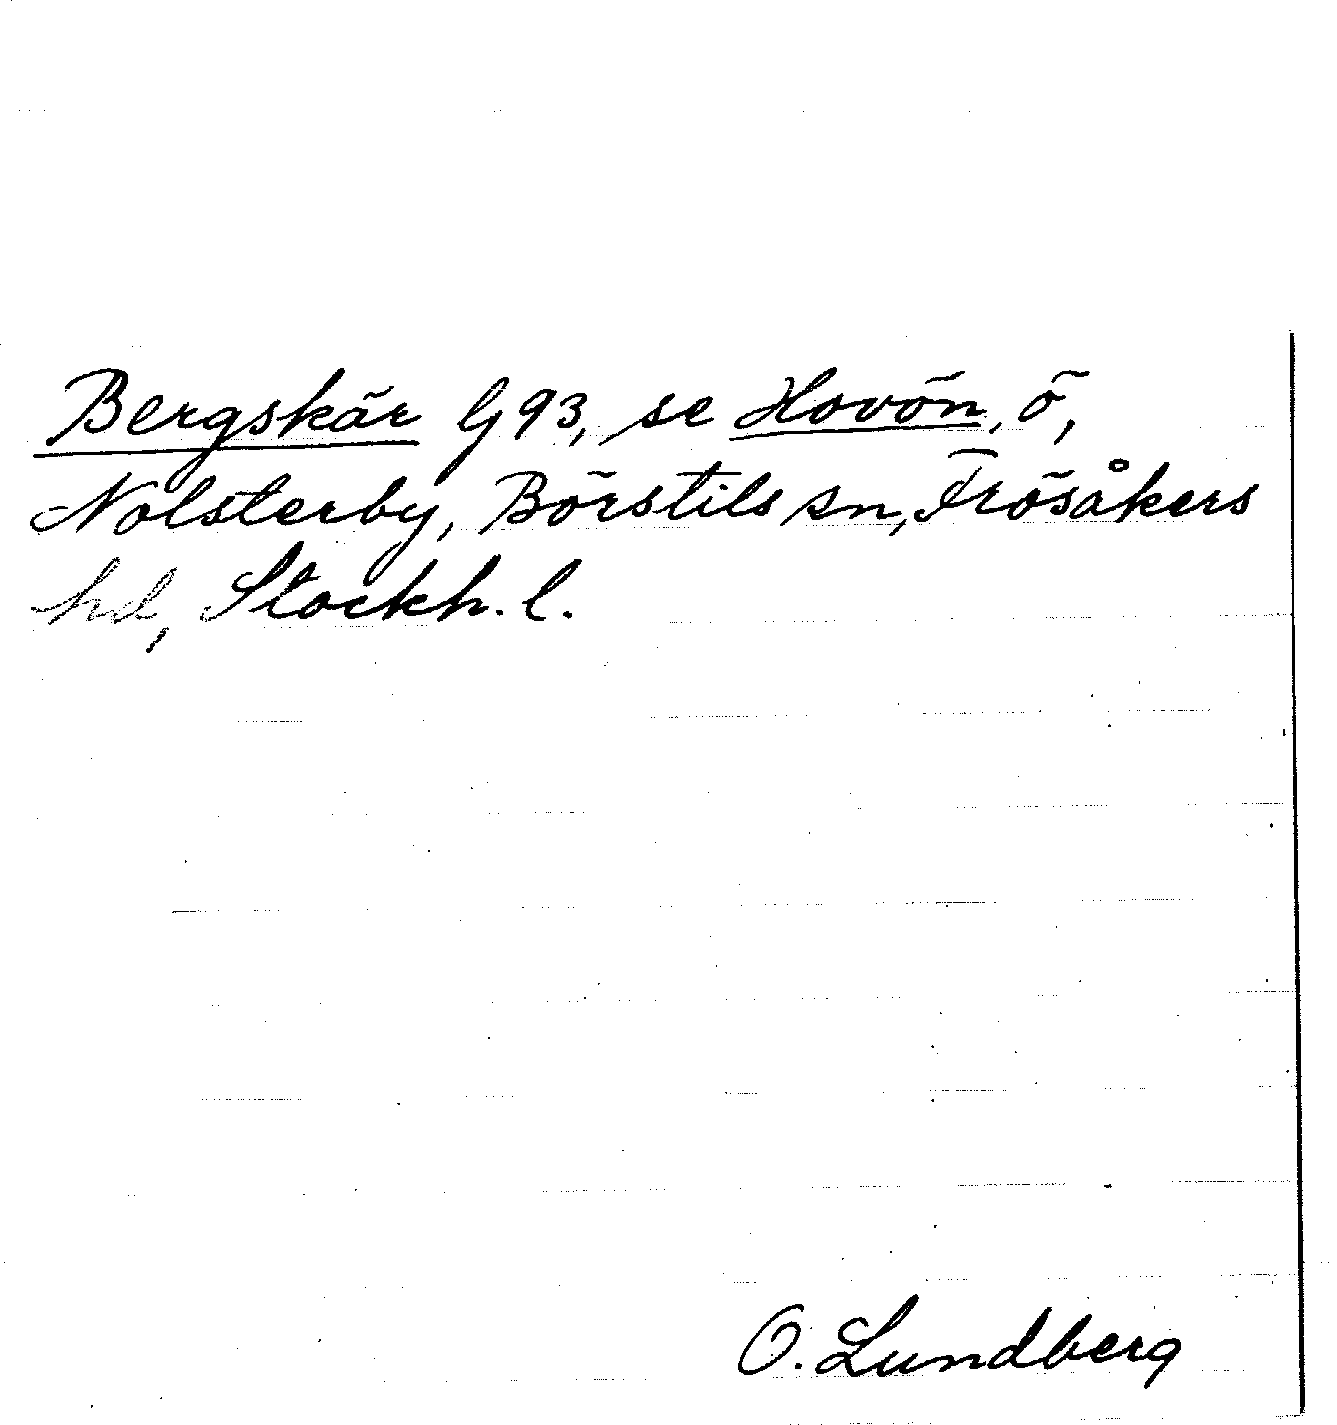 Bergskär G93, se Hovön, ö,
Nolsterby, Börstils sn, Frösåkers
hd, Stockh. l.
O. Lundberg